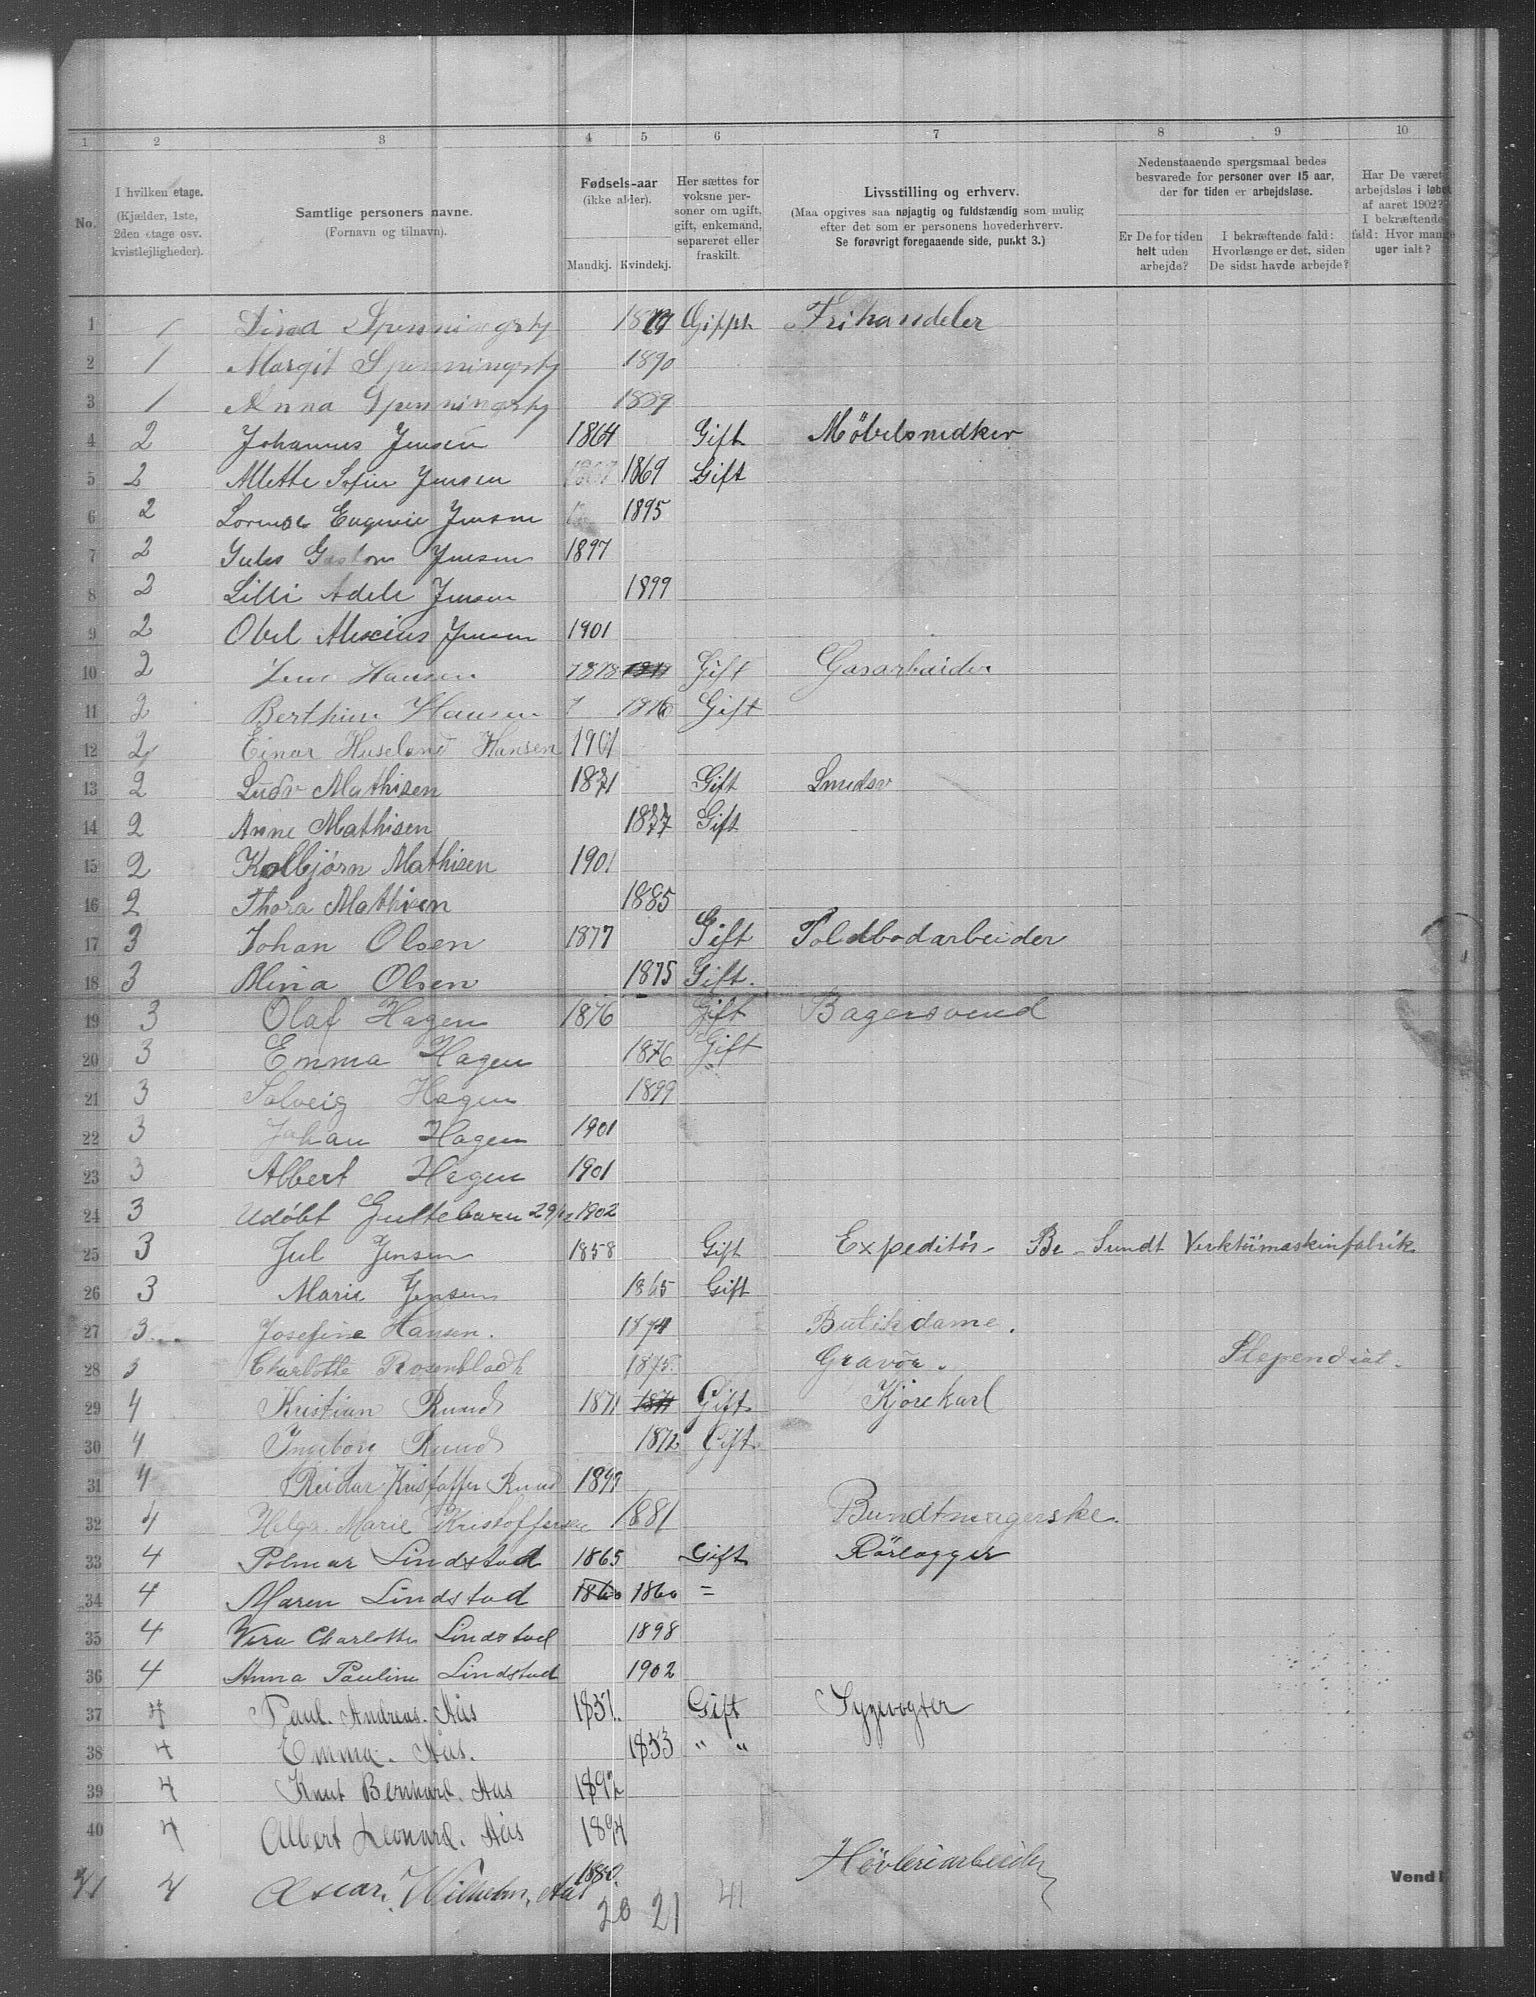 1 2 3 4 5 6 7 8 9 10
No. I hvilken etage. (Kjælder, 1ste, 2den etage osv. kvistlejligheder). Samtlige personers navne. (Fornavn og tilnavn). Fødsels-aar (ikke alder). Mandkj. Kvindekj. Her sættes for voksne personer om ugift, gift, enkemand, separeret eller fraskilt. Livsstilling og erhverv. (Maa opgives saa nøjagtig og fuldstændig som mulig efter det som er personens hovederhverv. Se forøvrigt foregaaende side, punkt 3.) Nedenstaaende spørgsmaal bedes besvarede for personer over 15 aar, der for tiden er arbejdsløse. Er De for tiden helt uden arbejde? I bekræftende fald: Hvorlænge er det, siden De sidst havde arbejde? Har De været arbejdsløs i løbet af aaret 1902? I bekræftende fald: Hvor mange uger ialt?
1 1 Spenningsby Gipph Frihandeler
2 1 Margit Spenningsby 1890
3 1 Anna Spenningsby 1889
4 2 Johannes Jensen 1864 Gift Møbelsnedker
5 2 Mette Sofie Jensen 1869 Gift
6 2 Eugenie Jensen 1895
7 2 Jules Gaston Jensen 1897
8 2 Lilli Adele Jensen 1899
9 2 Jensen 1901
10 2 Jens Hansen 1878 Gift Gasarbeider
11 2 Berthine Hansen 1876 Gift
12 2 Einar Huseland Hansen 1901
13 2 Ludv Mathisen 1871 Gift
14 2 Anne Mathisen 1877 Gift
15 2 Kolbjørn Mathisen 1901
16 2 Thora Mathisen 1885
17 3 Johan Olsen 1877 Gift Toldbodarbeider
18 3 Olsen 1875 Gift.
19 3 Olaf Hagen 1876 Gift Bagersvend
20 3 Emma Hagen 1876 Gift
21 3 Solveig Hagen 1899
22 3 Johan Hagen 1901
23 3 Albert Hagen 1901
24 3 Udøbt Guttebarn 29/12 1902
25 3 Jul Jensen 1858 Gift Expeditør Sundt Verktøimaskinfabrik
26 3 Marie Jensen 1865 Gift
27 3 Josefine Hansen. 1874 Butikdame.
28 3 Charlotte Rosenbladh 1875 Gravør. Stependiat.
29 4 Kristian Ruud 1871 1871 Gift Kjørekarl
30 4 Ingeborg Ruud 1872 Gift
31 4 Reidar Kristoffer Ruud 1899
32 4 Helga Marie Kristoffersen 1881 Bundtmagerske.
33 4 Lindstad 1865 Gift Rørlægger
34 4 Maren Lindstad 1860 1860 =
35 4 Vera Charlotte Lindstad 1898
36 4 Anna Pauline Lindstad 1902
37 4 Paul. Andreas. Aas 1851. Gift Sygevogter
38 4 Emma. Aas. 1853 " "
39 4 Knut Bernhard. Aas 1892
40 4 Albert Leonard. Aas 1894
41 4 Oscar. Wilhelm. Aas 1882. Høvleriarbeider
20 21 41
Vend!